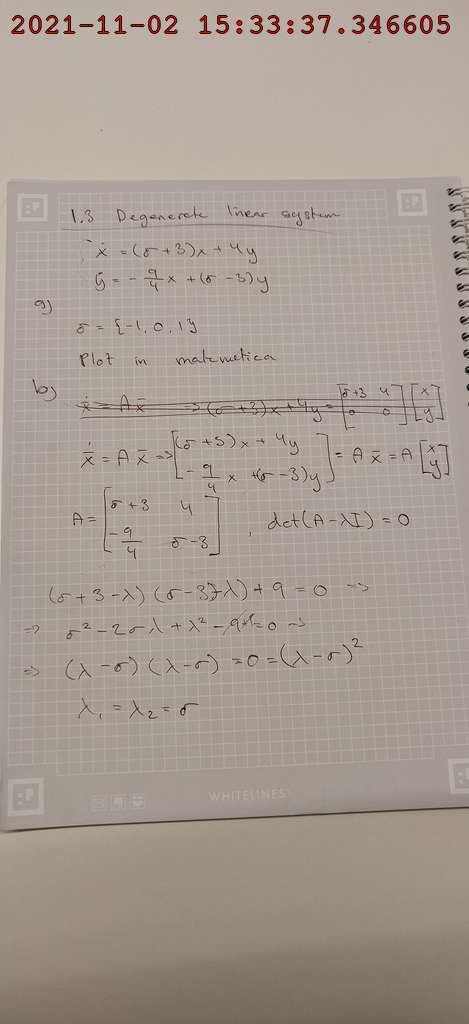 2021-11-02 15:33:37.346605
1.3 Degenerate linear system
ẋ = (σ+3)x + 4y
ẏ = - 9/4 x + (σ-3)y
a)
σ = {-1, 0, 1}
Plot in matematica
b)
ẋ = A x̄ => (σ+3)x + 4y = [σ+3 4; 0 0] [x; y]
ẋ̄ = A x̄ => [(σ+3)x + 4y; - 9/4 x + (σ-3)y] = A x̄ = A [x; y]
A = [σ+3 4; -9/4 σ-3] , det(A-λI) = 0
(σ+3-λ)(σ-3-λ) + 9 = 0 =>
=> σ² - 2σλ + λ² - 9+9 = 0 =>
=> (λ-σ)(λ-σ) = 0 = (λ-σ)²
λ₁ = λ₂ = σ
WHITELINES